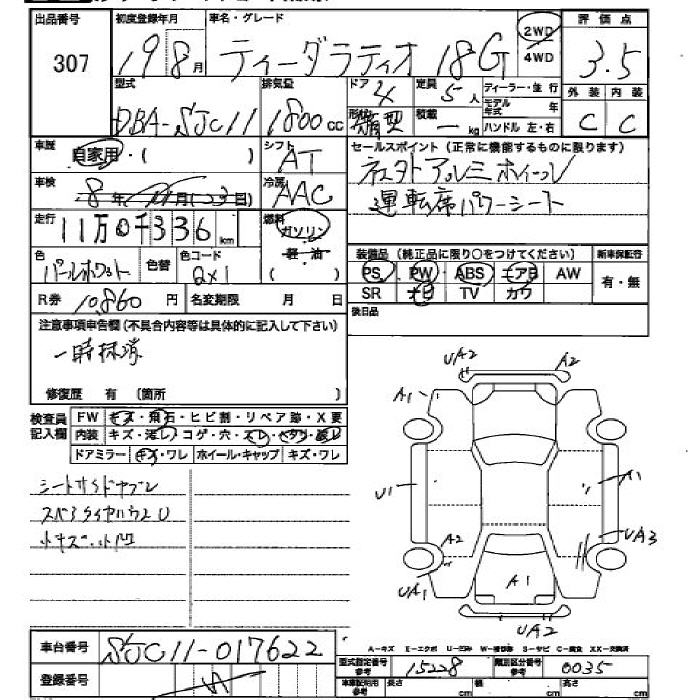 出品番号 初度登録年月 車名・グレード 評価点
307 19 8月 ティーダラティオ 18G 2WD 4WD 3.5
型式 排気量 ドア 4 定員 5人 ディーラー・並行 外装 内装
DBA-SJC11 1800cc 形状 箱型 積載 ― kg モデル年式 年 ハンドル 左・右 C C
車歴 自家用・( ) シフト AT セールスポイント（正常に機能するものに限ります）
車検 8年 月(23日) 冷房 AAC 社外アルミホイール
運転席パワーシート
走行 11万0千336km 燃料 ガソリン 軽油 ( )
色 パールホワイト 色替 色コード QX1 装備品（純正品に限り○をつけてください） 新車保証書
PS PW ABS エアB AW 有・無
R券 10,860円 名変期限 月 日 SR ナビ TV カワ
注意事項申告欄（不具合内容等は具体的に記入して下さい） 後日品
一時抹消
修復歴 有 〔箇所 〕
検査員記入欄 FW キズ・飛石・ヒビ割・リペア跡・X要
内装 キズ・汚レ・コゲ・穴・スレ・ヘタリ・破レ
ドアミラー キズ・ワレ ホイール・キャップ キズ・ワレ
UA2 A2
A1
U1 A1
A2 UA3
UA1 A1
UA2
小キズ・小凹
車台番号 SJC11-017622 A-キズ E-エクボ U-凹み W-補修跡 S-サビ C-腐食 XX-交換済
型式指定番号 参考 15228 類別区分番号 参考 0035
登録番号 車庫証明用 参考 長さ cm 幅 cm 高さ cm